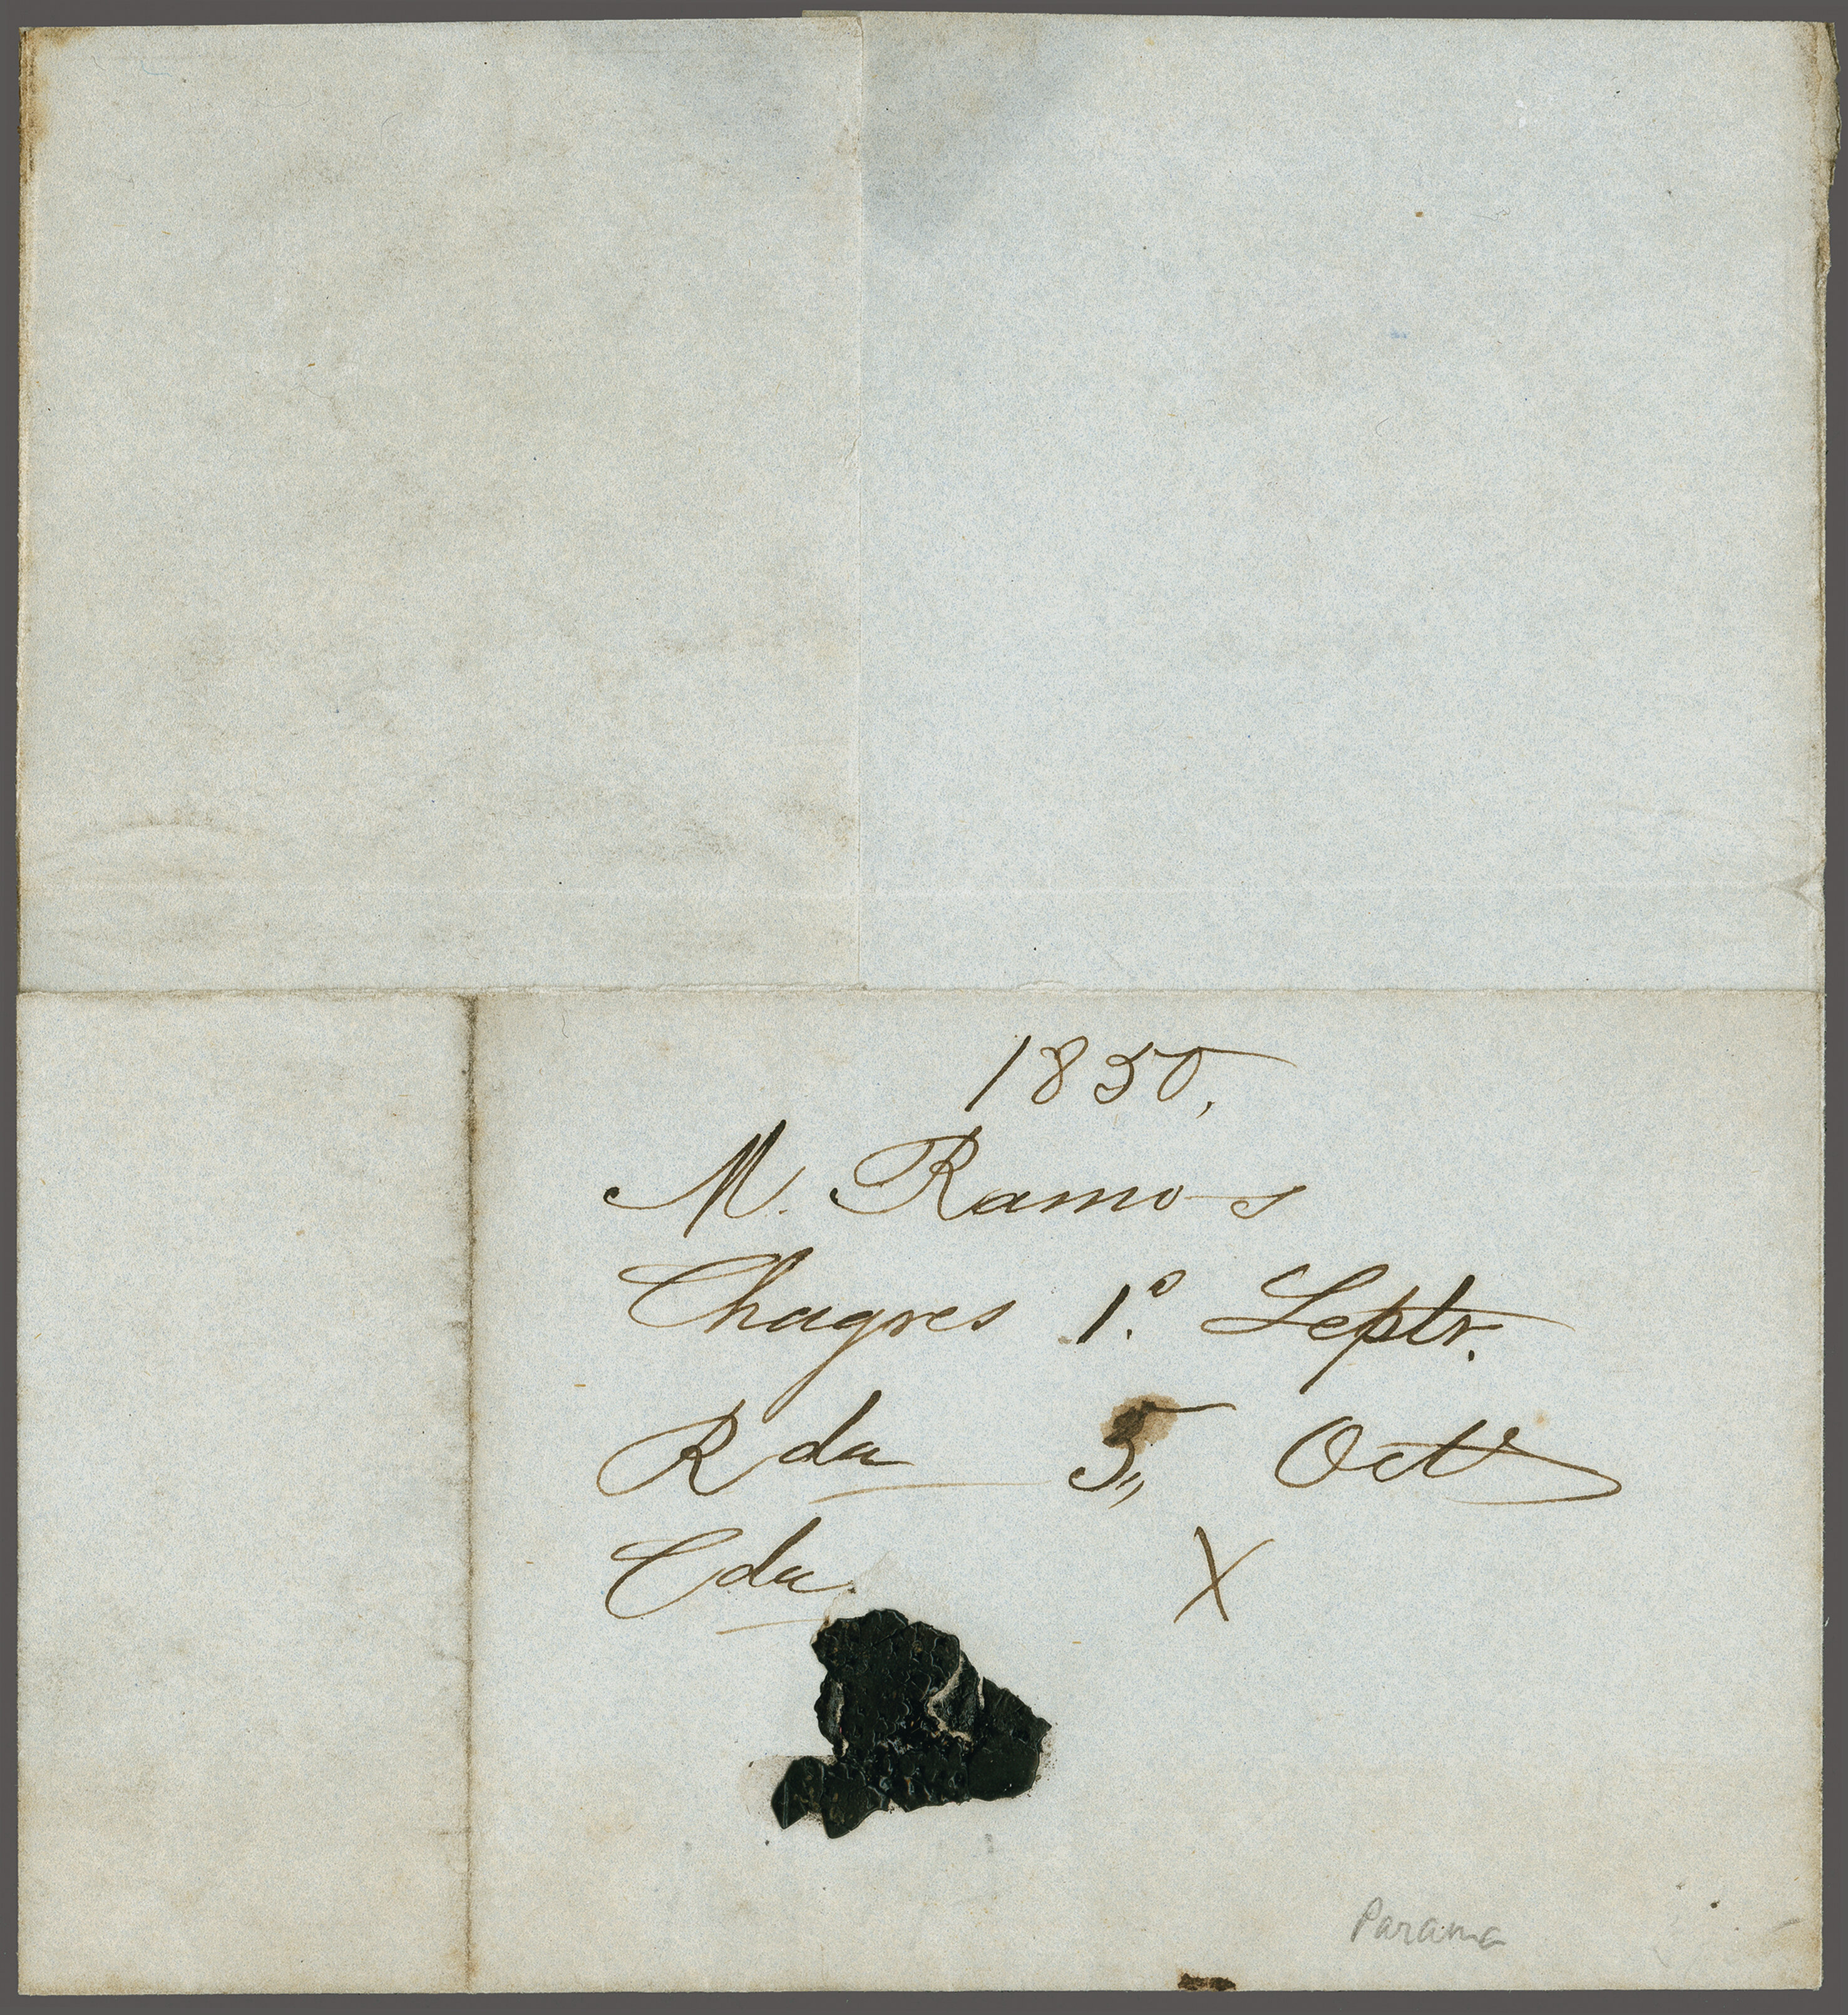 1850,
M. Ramos
Chagres 1º. Septr.
Rda 5,, Oct
Cda. X
Parama